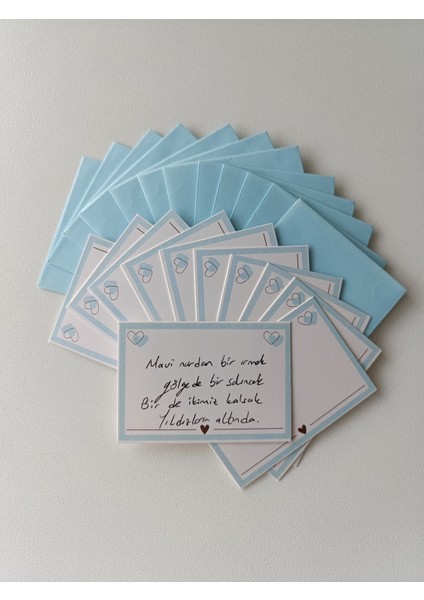 Mavi nurdan bir ırmak
gölgede bir salıncak
Bir de ikimiz kalsak
Yıldızların altında.